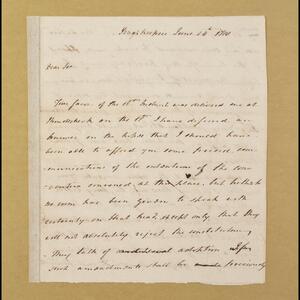 Poughkeepsie June 14th
Dear Sir
Your favor of the 8th Instant was delivered me at
on the 11th I have deferred an
answer in the hopes that I should have
been able to afford you some precise com-
munications of the intentions of the con-
vention convened at this place, but hitherto
no man has been given to speak with
certainty on that head, except only that they
will not absolutely reject the constitution
They talk of adoption
such amendments shall be previously